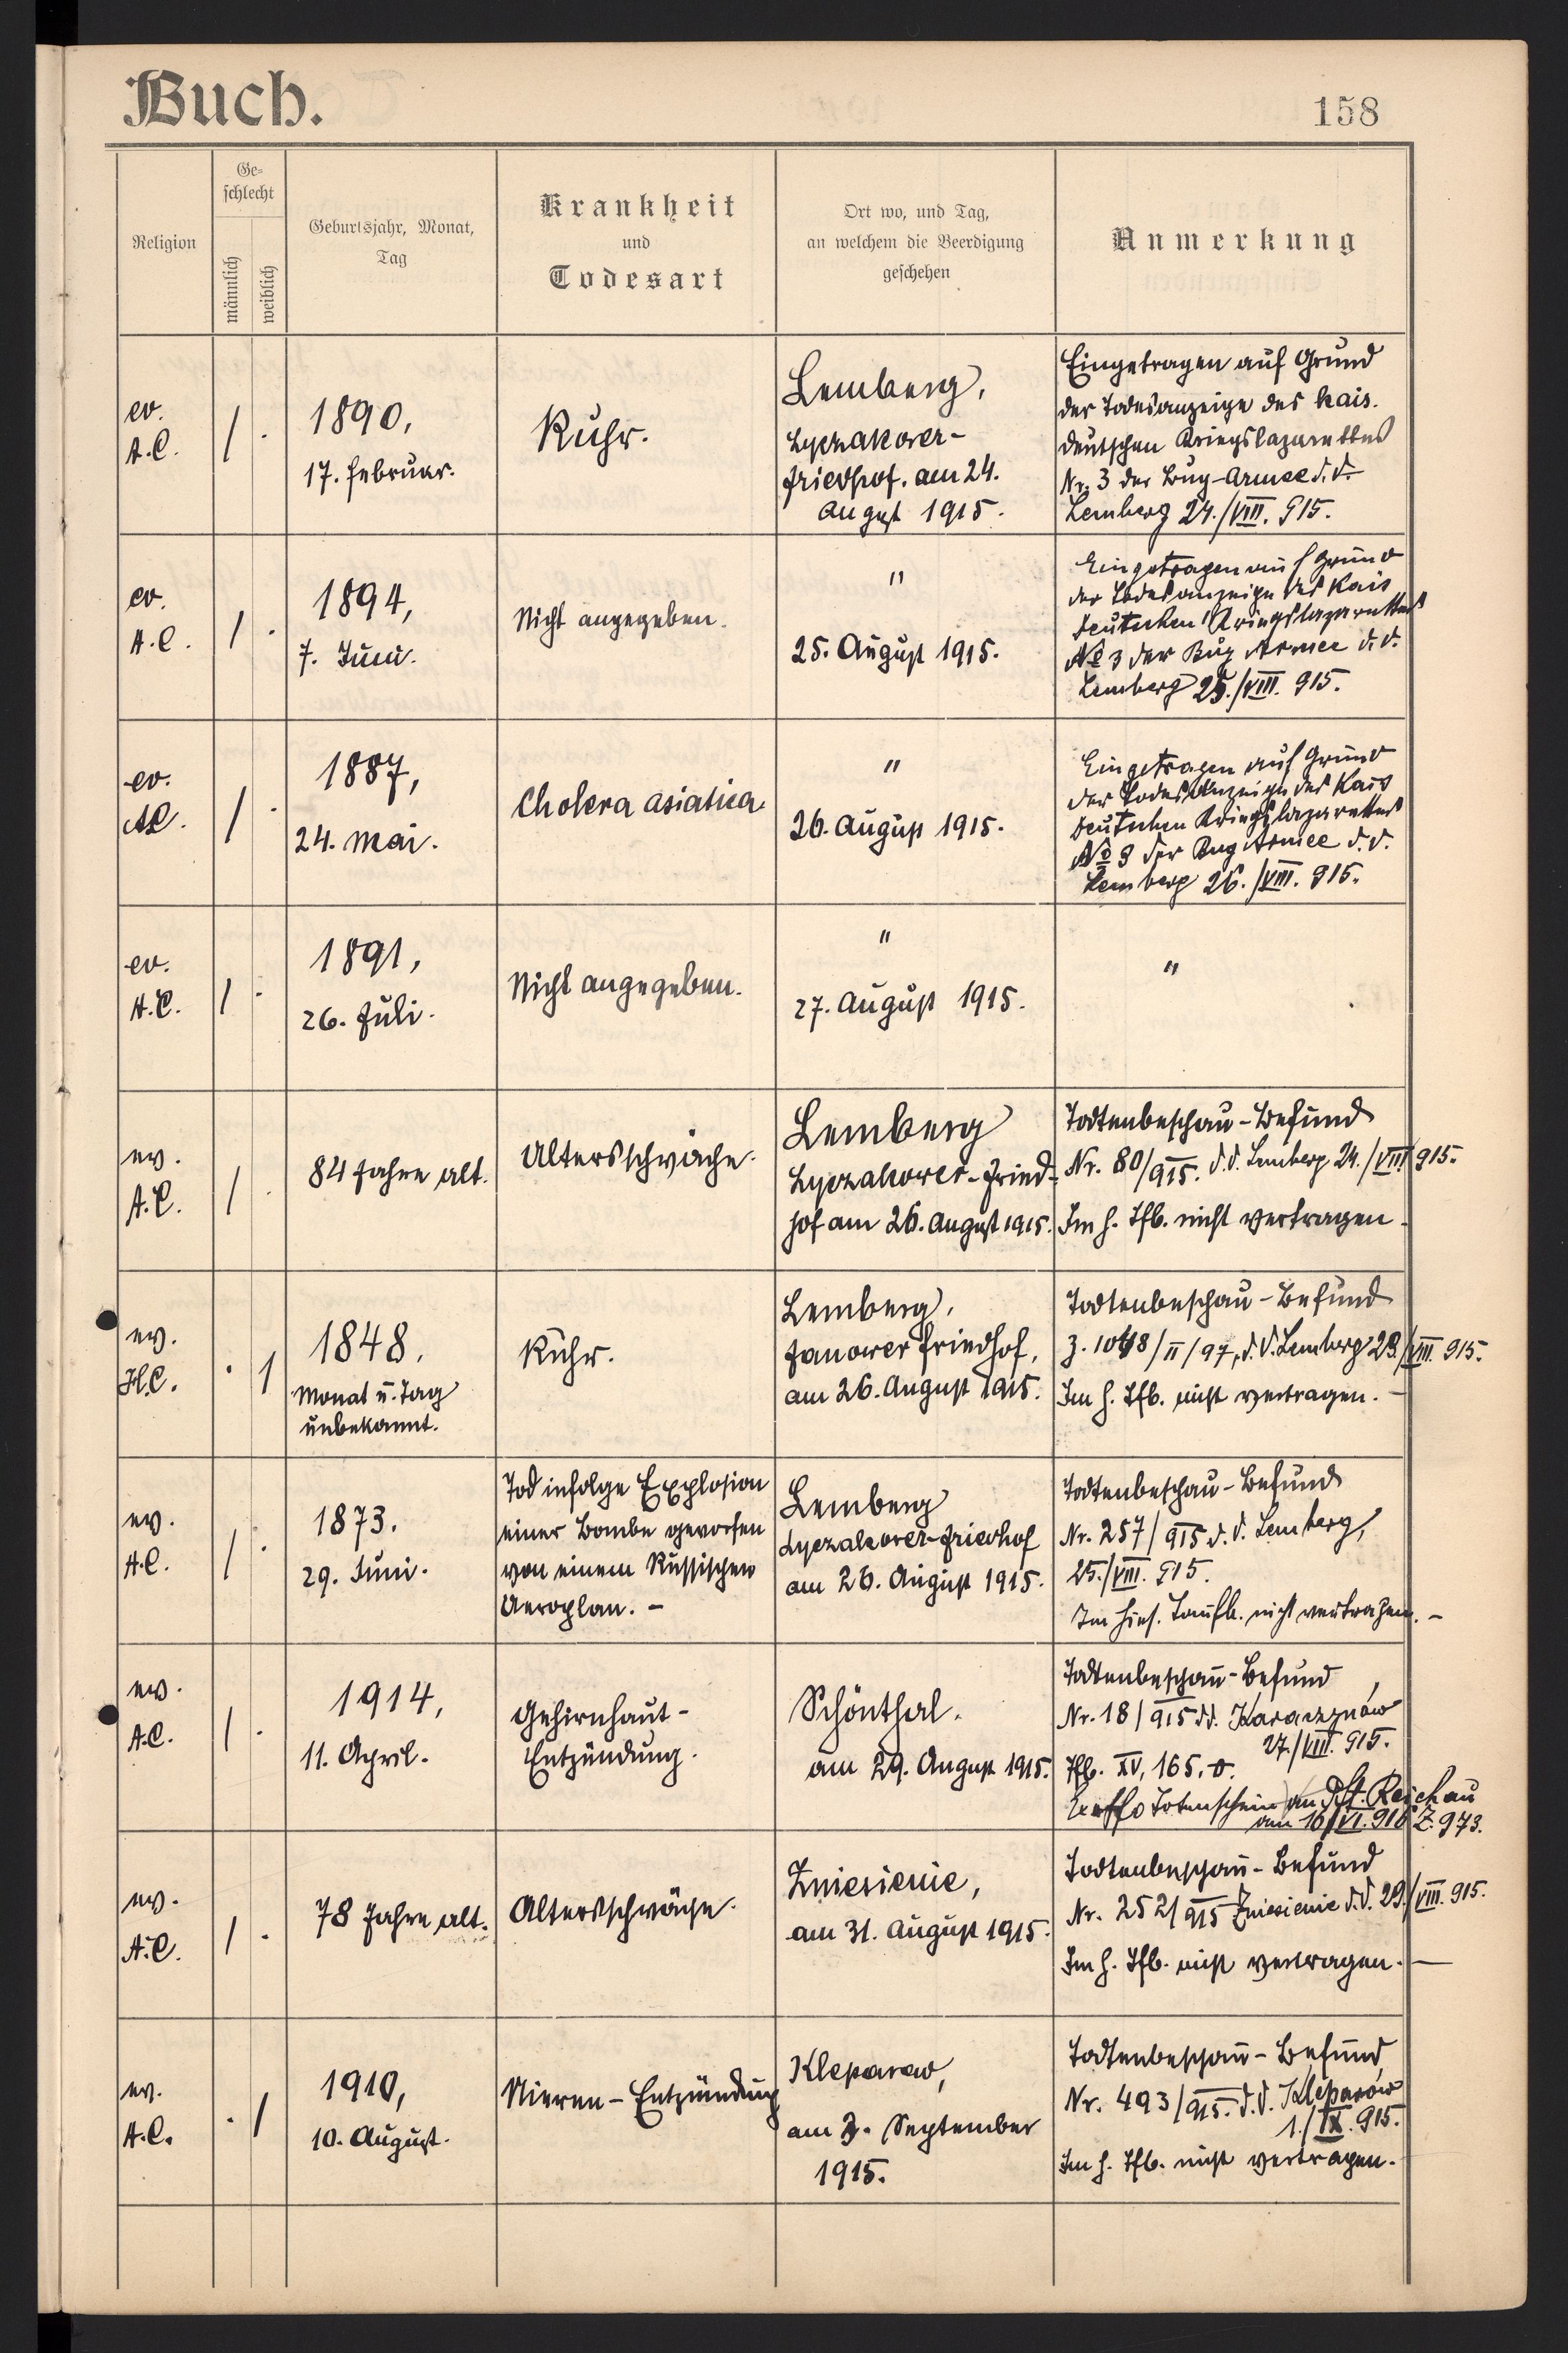 Buch.
158
Religion
Ge-
schlecht
männlich
weiblich
Geburtsjahr, Monat,
Tag
Krankheit
und
Todesart
Ort wo, und Tag,
an welchem die Beerdigung
geschehen
Anmerkung
ev.
A.C.
/ .
1890,
17. Februar.
Ruhr.
Lemberg,
Lyczakower-
Friedhof. am 24.
August 1915.
Eingetragen auf Grund
der Todesanzeige des kais.
deutschen Kriegslazarettes
Nr. 3 der Bug-Armee d.d.
Lemberg 24./VIII. 915.
ev.
A.C.
/ .
1894,
7. Juni.
Nicht angegeben.
"
25. August 1915.
Eingetragen auf Grund
der Todesanzeige des Kais
deutschen Kriegslazarettes
№ 3 der Bug Armee d.d.
Lemberg 25./VIII. 915.
ev.
A.C.
/ .
1887,
24. Mai.
Cholera asiatica.
"
26. August 1915.
Eingetragen auf Grund
der Todesanzeige des Kais
deutschen Kriegslazarettes
№ 3 der Bug Armee d.d.
Lemberg 26./VIII. 915.
ev.
A.C.
/ .
1891,
26. Juli.
Nicht angegeben.
"
27. August 1915.
"
ev.
A.C.
/ .
84 Jahre alt.
Altersschwäche.
Lemberg
Lyczakower-Fried-
hof am 26. August 1915.
Todtenbeschau-Befund
Nr. 80/915. d.d. Lemberg 24./VIII 915.
Im h. Tfb. nicht vertragen.
ev.
H.C.
. /
1848.
Monat u. Tag
unbekannt.
Ruhr.
Lemberg,
Janower Friedhof,
am 26. August 1915.
Todtenbeschau-Befund
Z. /II/97, d.d. Lemberg 23./VIII. 915.
Im h. Tfb. nicht vertragen. -
ev.
A.C.
/ .
1873.
29. Juni.
Tod infolge Explosion
einer Bombe geworfen
von einem Russischen
Aeroplan. -
Lemberg
Lyczakower-Friedhof
am 26. August 1915.
Todtenbeschau-Befund
Nr. 257/915 d.d. Lemberg,
25./VIII. 915.
Im hies. Taufb. nicht vertragen. -
ev.
A.C.
/ .
1914,
11. April.
Gehirnhaut-
Entzündung.
Schönthal.
am 29. August 1915.
Todtenbeschau-Befund
Nr. 18/915 dd. Karaczynów
27./VIII. 915.
Tfb. XV, 165.
Exoffo Totenschein an Pft. Reichau
am 16/VI. 916 Z. 973.
ev.
A.C.
/ .
78 Jahre alt.
Altersschwäche.
Zniesienie,
am 31. August 1915.
Todtenbeschau-Befund
Nr. 252/915 Zniesienie d.d. 29./VIII. 915.
Im h. Tfb. nicht vertragen. -
ev.
A.C.
. /
1910,
10. August.
Nieren-Entzündung
Kleparow,
am 3. September
1915.
Todtenbeschau-Befund
Nr. 493/915. d.d. Kleparów
1./IX. 915.
Im h. Tfb. nicht vertragen.